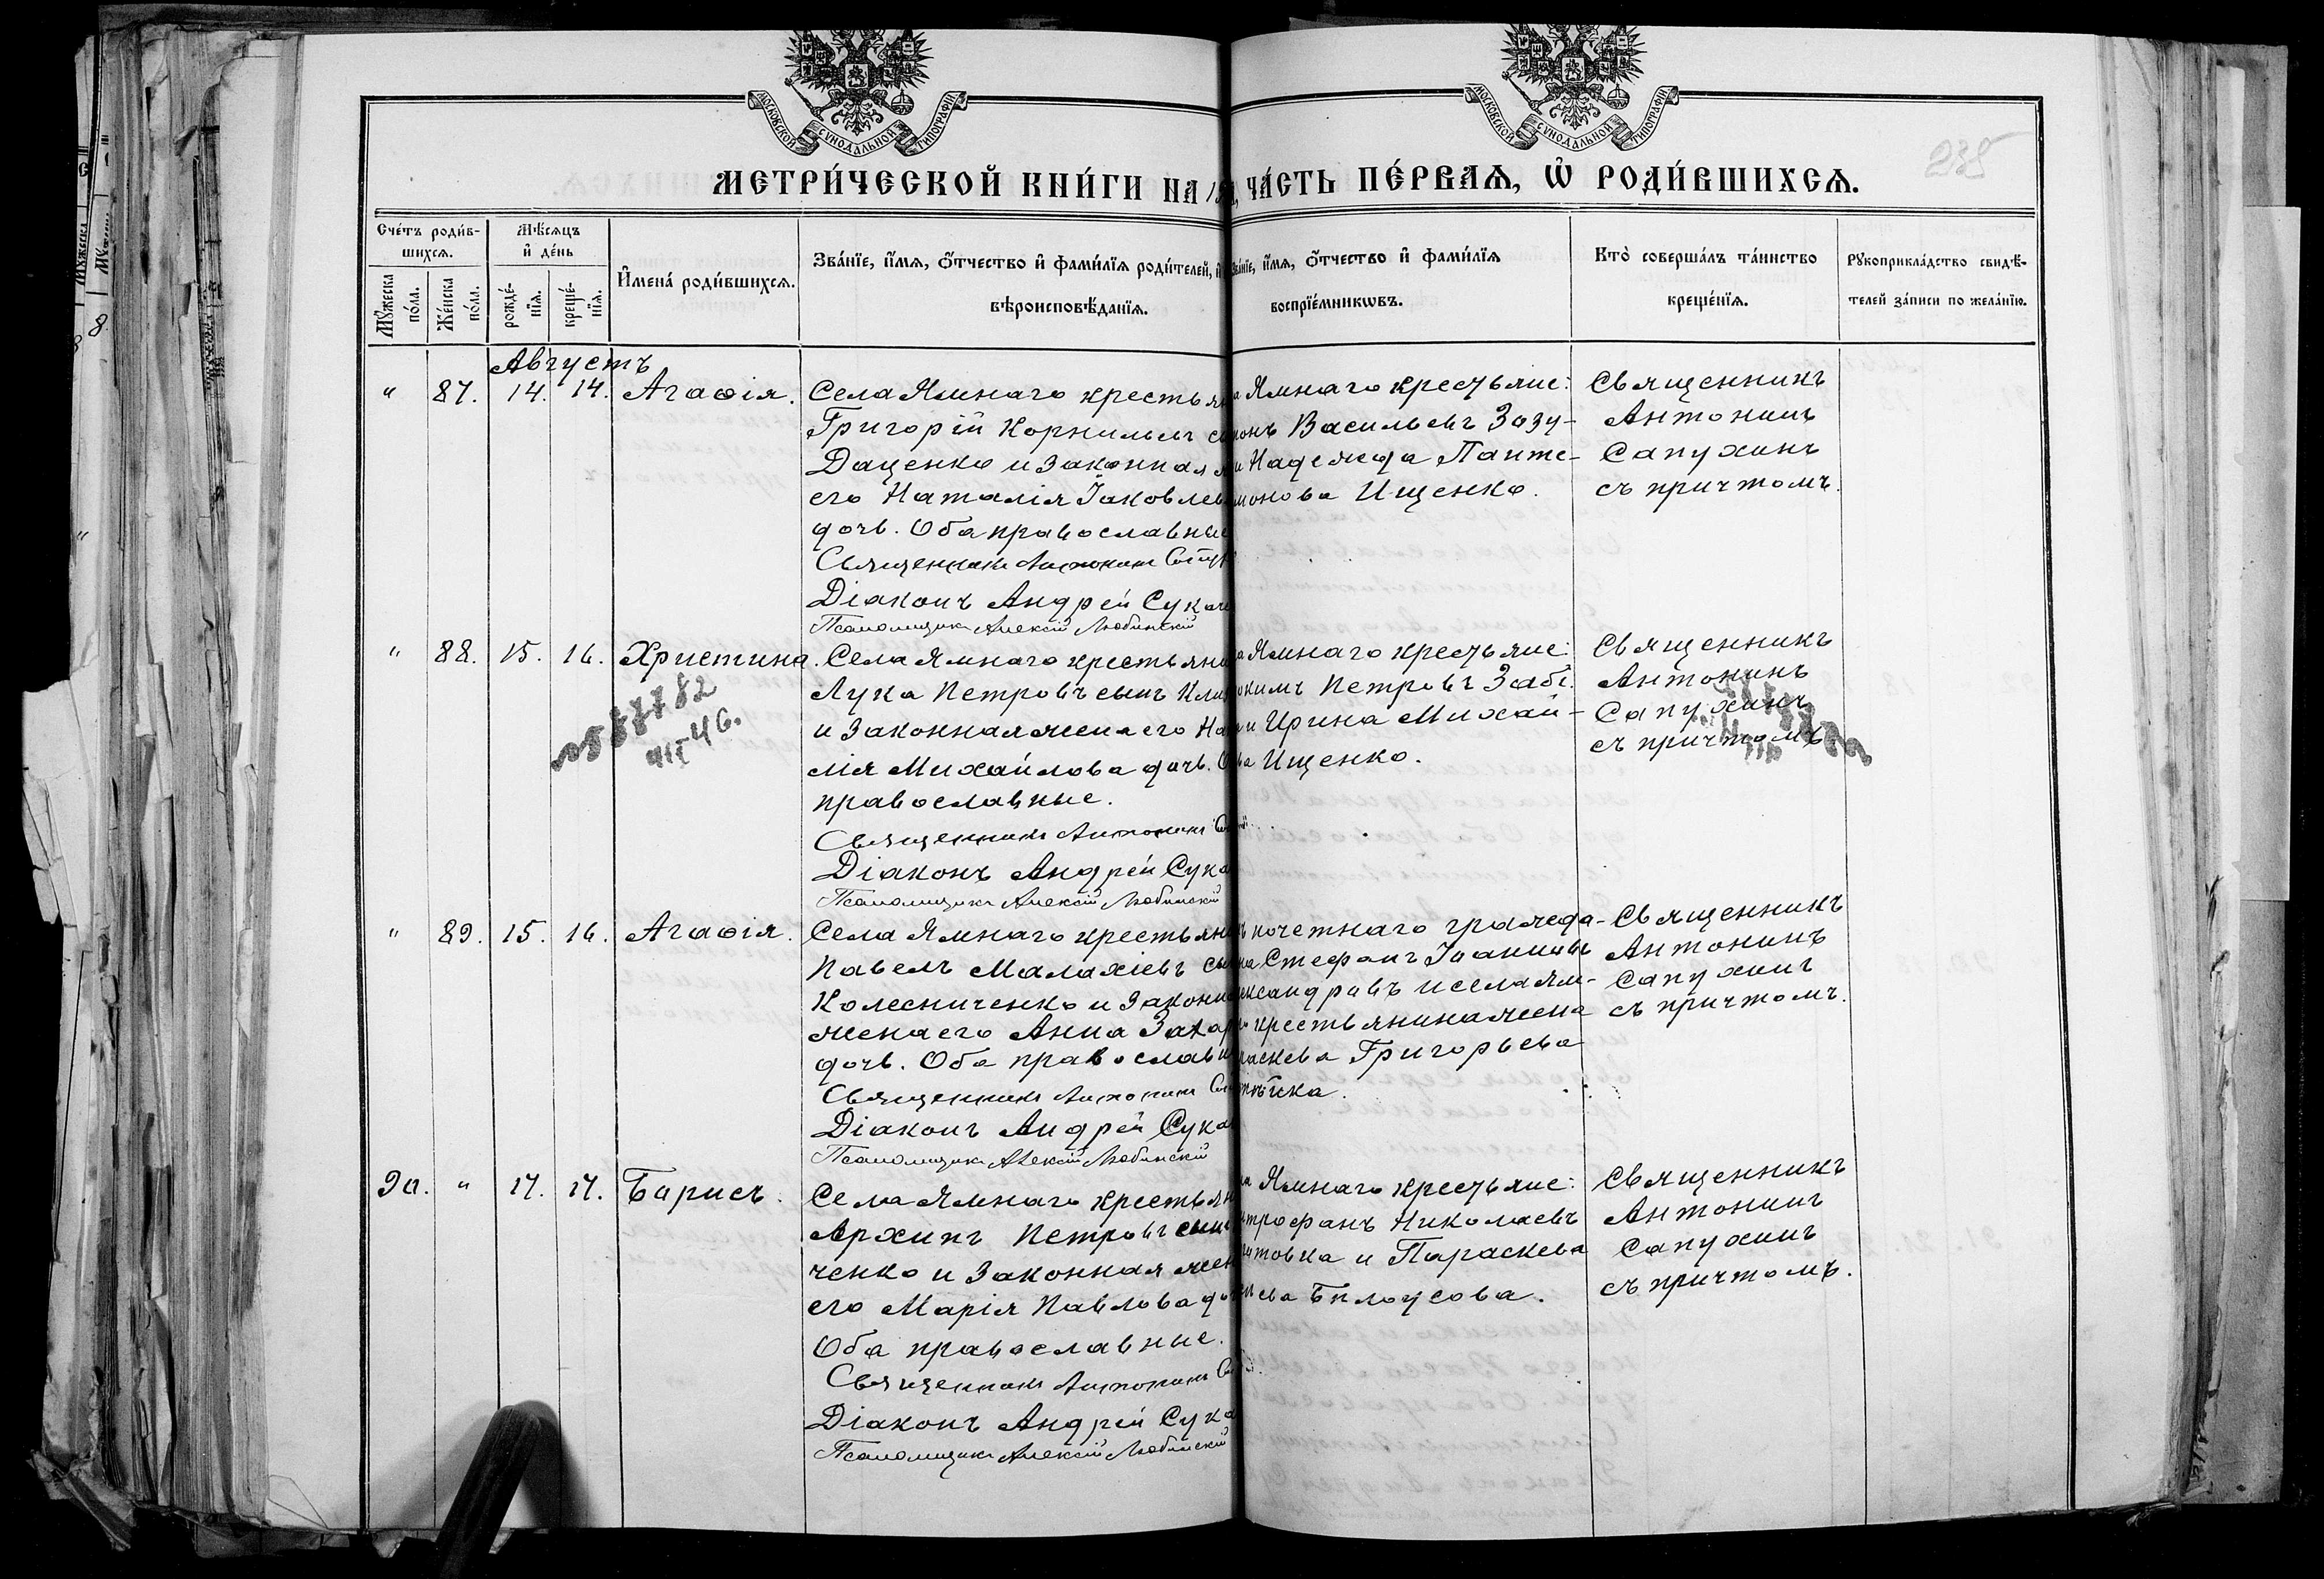 МОСКОВСКОЙ СѴНОДАЛЬНОЙ ТИПОГРАФІИ
МОСКОВСКОЙ СѴНОДАЛЬНОЙ ТИПОГРАФІИ
238
МЕТРИ́ЧЕСКОЙ КНИ́ГИ НА ЧА́СТЬ ПЕ́РВАѦ, Ѡ҆ РОДИ́ВШИХСѦ.
Сче́тъ роди́в-
шихсѧ.
Мꙋ́жеска по́ла.
Же́нска по́ла.
Мѣ́сѧцъ
и҆ де́нь
рожде́-
нїѧ.
креще́-
нїѧ.
И҆мена̀ роди́вшихсѧ.
Зва́нїе, и҆́мѧ, ѻ҆́тчество и҆ фами́лїѧ роди́телей, и҆
вѣроисповѣ́данїѧ.
Зва́нїе, и҆́мѧ, ѻ҆́тчество и҆ фами́лїѧ
воспрїе́мникѡвъ.
Кто̀ соверша́лъ та́инство
креще́нїѧ.
Рꙋкоприкла́дство свидѣ́-
телей за́писи по жела́нїю.
Августъ
" 87. 14. 14. Агаѳія.
Села Ямнаго крестьян
Григорій Корнильевъ сы
Даценко и законная ж
его Наталія Іаковлев
дочь. Оба православные
Священникъ Антонинъ
Діаконъ Андрей Сука
Псаломщикъ Алексій Любинскій
Ямнаго крестьяне:
Васильевъ Зозу-
и Надежда Панте-
монова Ищенко.
Священникъ
Антонинъ
Сапухинъ
съ причтомъ.
" 88. 15. 16. Христина.
Села Ямнаго крестьяни
Лука Петровъ сынъ Кли
и законная жена его На
лія Михайлова дочь. О
православные.
Священникъ Антонинъ
Діаконъ Андрей Сука
Псаломщикъ Алексій Любинскій
Ямнаго крестьяне:
кимъ Петровъ Забі.
и Ирина Михай-
ва Ищенко.
Священникъ
Антонинъ
Сапухинъ
съ причтомъ.
46.
" 89. 15. 16. Агаѳія.
Села Ямнаго крестьян
Павелъ Малахіевъ сы
Колесниченко и законн
жена его Анна Захар
дочь. Оба православн
Священникъ Антонинъ
Діаконъ Андрей Сука
Псаломщикъ Алексій Любинскій
почетнаго гражда-
на Стефанъ Іоанновъ
ександровъ и села Ям-
крестьянина жена
раскева Григорьева
Священникъ
Антонинъ
Сапухинъ
съ причтомъ.
90. " 17. 17. Борисъ.
Села Ямнаго крестьян
Архипъ Петровъ сын
ченко и законная жен
его Марія Павлова до
Оба православные.
Священникъ Антонинъ
Діаконъ Андрей Сука
Псаломщикъ Алексій Любинскій
Ямнаго крестьяне:
трофанъ Николаевъ
товка и Параскева
ева Бѣлоусова.
Священникъ
Антонинъ
Сапухинъ
съ причтомъ.